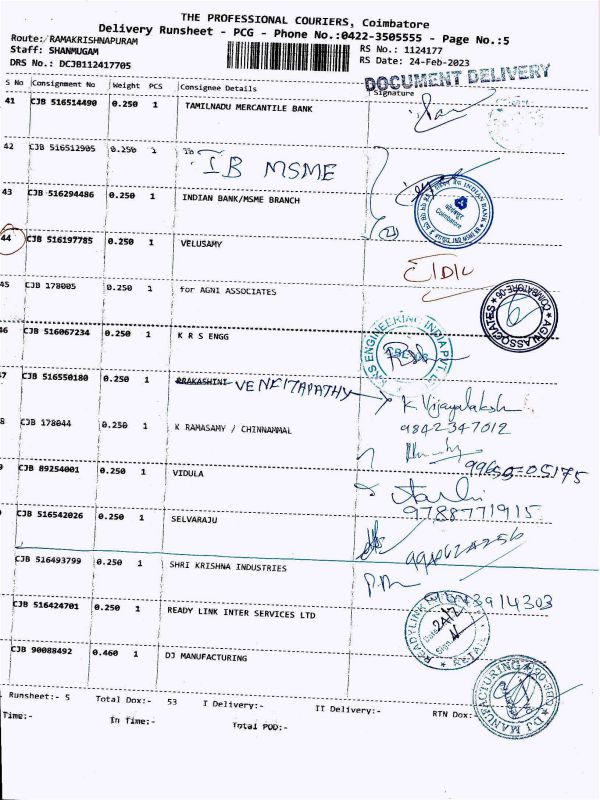 THE PROFESSIONAL COURIERS, Coimbatore
Delivery Runsheet - PCG - Phone No.:0422-3505555 - Page No.:5
Route: RAMAKRISHNAPURAM
RS No.: 1124177
Staff: SHANMUGAM
RS Date: 24-Feb-2023
DRS No.: DCJB112417705
DOCUMENT DELIVERY
S No Consignment No Weight PCS Consignee Details Signature
41 CJB 516514490 0.250 1 TAMILNADU MERCANTILE BANK
42 CJB 516512905 0.250 1 To IB MSME
43 CJB 516294486 0.250 1 INDIAN BANK/MSME BRANCH
INDIAN BANK
Coimbatore
44 CJB 516197785 0.250 1 VELUSAMY
45 CJB 178005 0.250 1 for AGNI ASSOCIATES
AGNI ASSOCIATES COIMBATORE-06
46 CJB 516067234 0.250 1 K R S ENGG
KRS ENGINEERING INDIA PVT. LTD
47 CJB 516550180 0.250 1 PRAKASHINI VENKITAPATHY
K Vijayalaksh
9842347012
8 CJB 178044 0.250 1 K RAMASAMY / CHINNAMMAL
99655-05175
9 CJB 89254001 0.250 1 VIDULA
9788771915
CJB 516542026 0.250 1 SELVARAJU
CJB 516493799 0.250 1 SHRI KRISHNA INDUSTRIES
CJB 516424701 0.250 1 READY LINK INTER SERVICES LTD
READYLINK
Date 24/2
Sign
CJB 90088492 0.460 1 DJ MANUFACTURING
DJ MANUFACTURING
Runsheet:- 5 Total Dox:- 53 I Delivery:- II Delivery:- RTN Dox:-
Time:- In Time:- Total POD:-